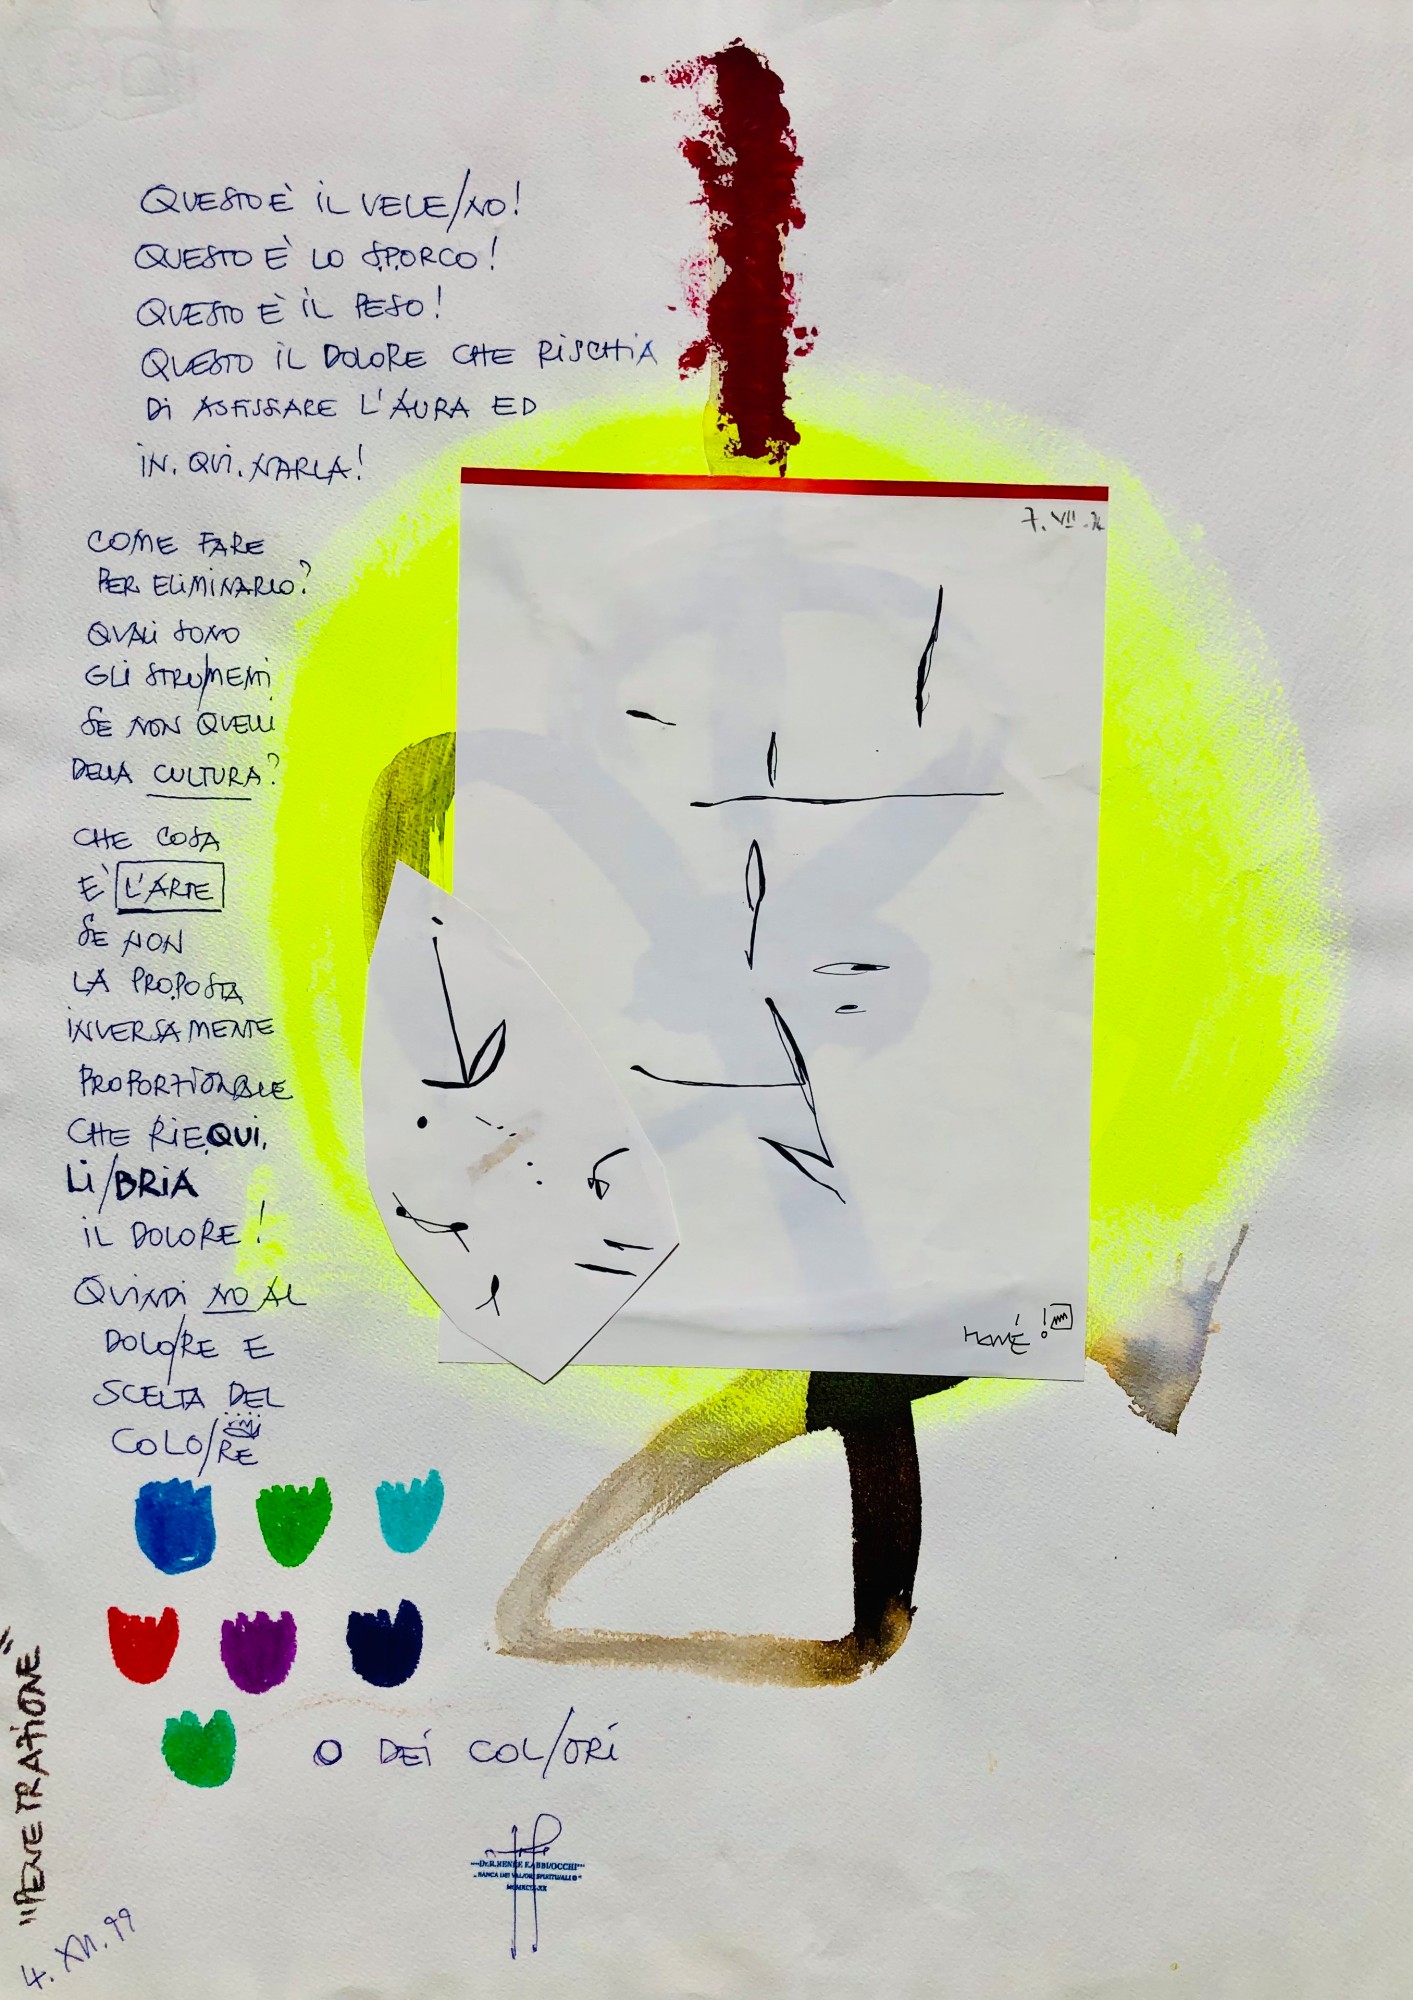 QUESTO È IL VELE/NO!
QUESTO È LO S.P.ORCO!
QUESTO È IL PESO!
QUESTO IL DOLORE CHE RISCHIA
DI ASFISSARE L'AURA ED
IN.QUI.NARLA!
COME FARE
PER ELIMINARLO?
QUALI SONO
GLI STRU/MENTI
SE NON QUELLI
DELLA CULTURA?
CHE COSA
E' L'ARTE
SE NON
LA PROPOSTA
INVERSAMENTE
PROPORZIONALE
CHE RIEQUI.
LI/BRIA
IL DOLORE!
QUINDI NO AL
DOLO/RE E
SCELTA DEL
COLO/RE
O DEI COL/ORI
7.VII.
"PENETRAZIONE"
4.XII.99
BANCA DEI VALORI SPIRITUALI